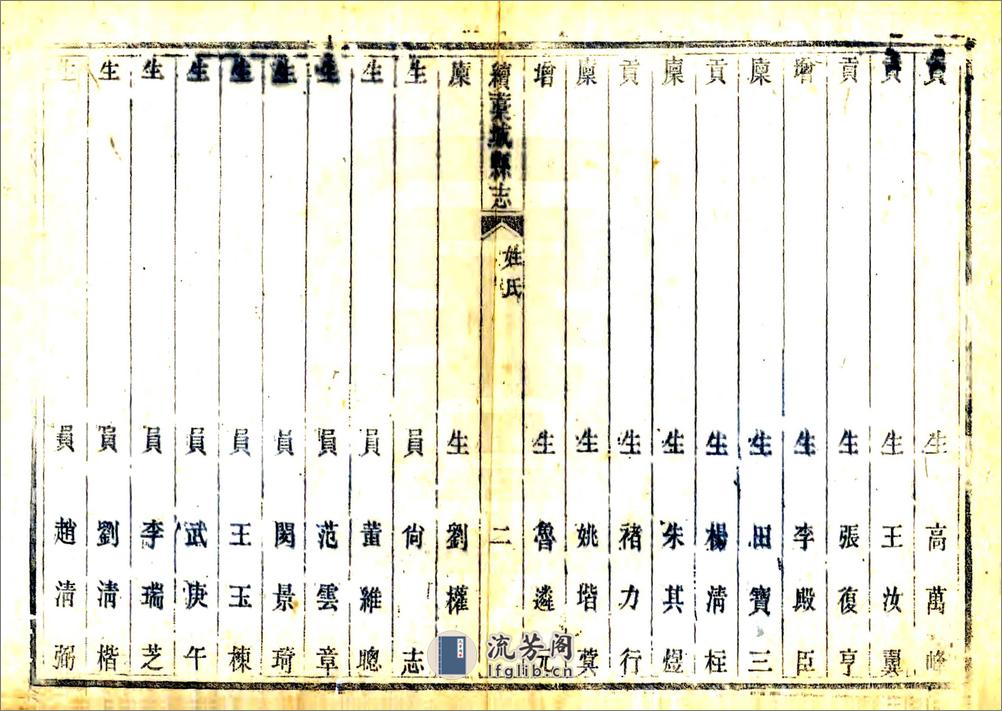 貢生高萬峰
貢生王汝翼
貢生張復亨
增生李殿臣
廩生田寶三
貢生楊清桂
廩生朱其煜
貢生褚力行
廩生姚堦蓂
增生魯遴元
續藁城縣志 姓氏 二
廩生劉權
生員尙志
生員董維聰
生員范雲章
生員閔景琦
生員王玉棟
生員武庚午
生員李瑞芝
生員劉清楷
生員趙清弼
流芳阁
lfglib.cn